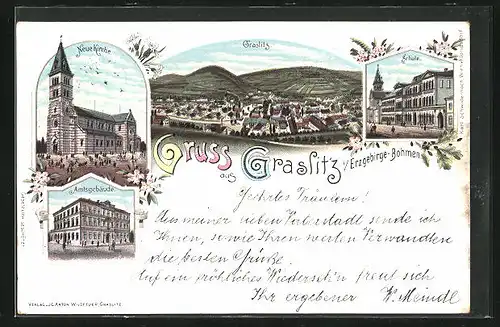 Neue Kirche.
Graslitz.
Schule.
Gruss aus Graslitz i/ Erzgebirge-Böhmen
Amtsgebäude.
Geehrtes Fräulein!
Aus meiner lieben Vaterstadt sende ich
Ihnen, sowie Ihren werten Verwandten
die besten Grüße.
Auf ein fröhliches Wiederseh'n freut sich
Ihr ergebener W. Meindl
VERLAG J.C. ANTON GRASLITZ.